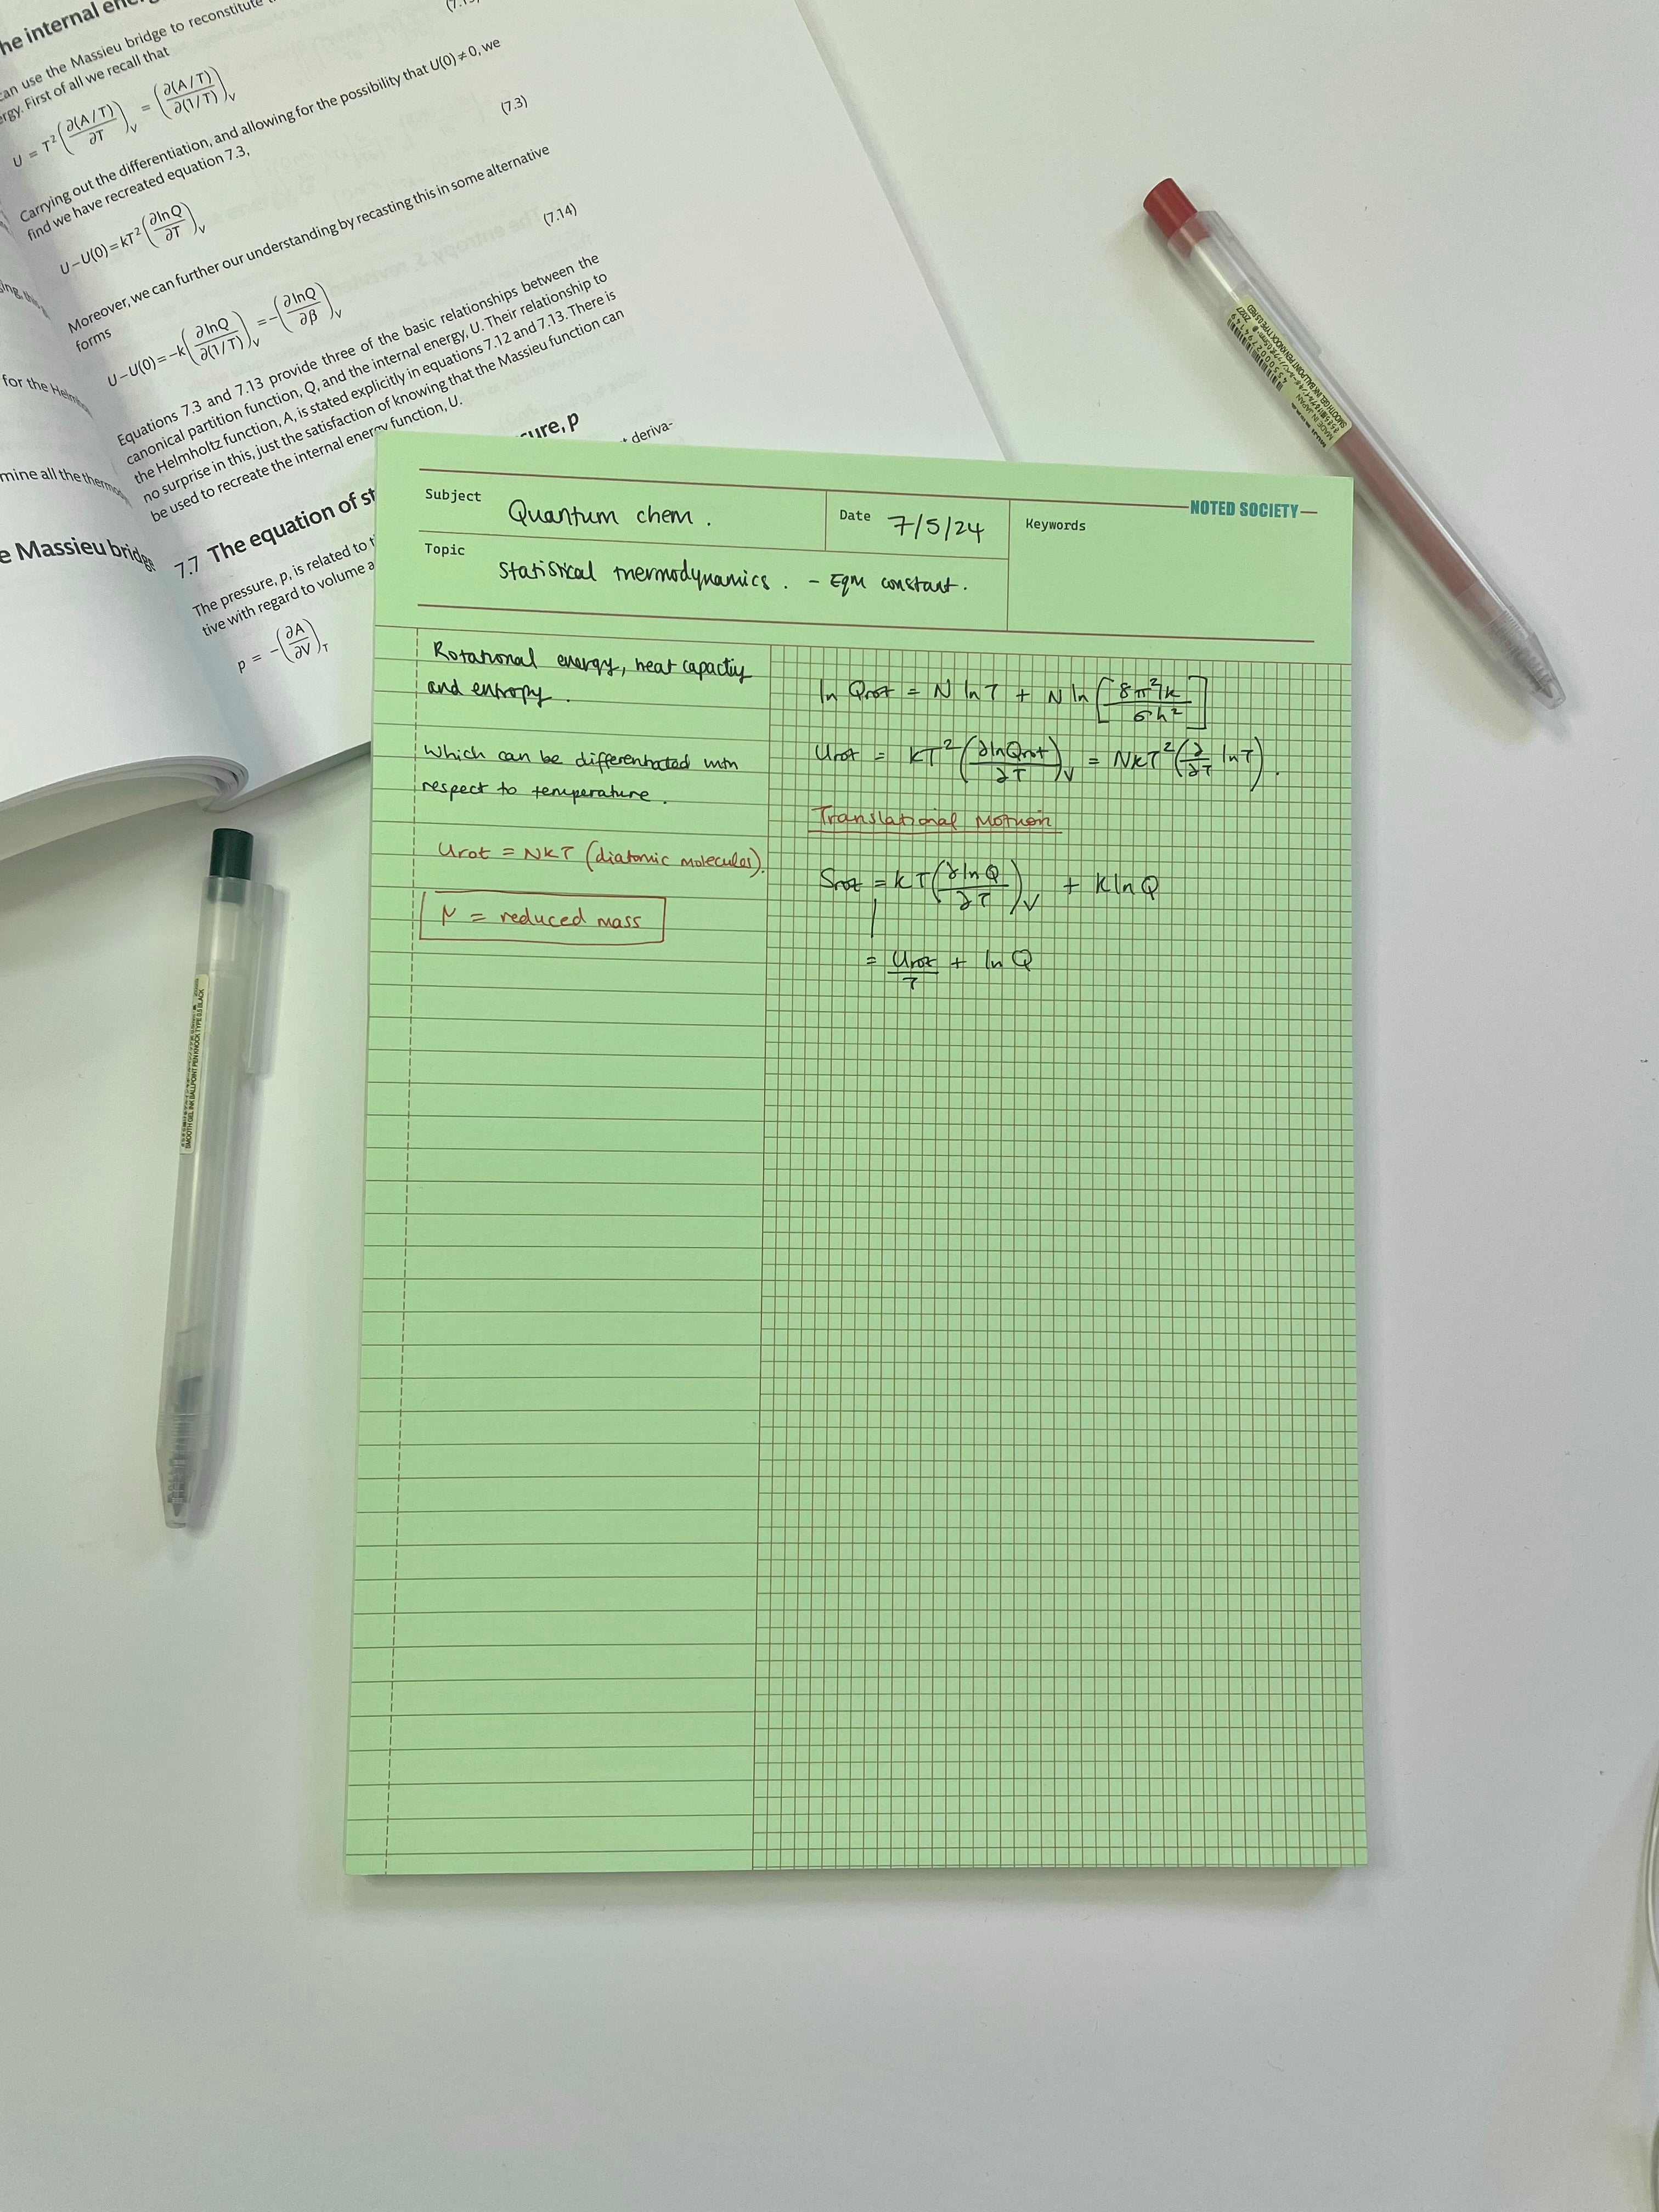 he internal ener
(7.13)
can use the Massieu bridge to reconstitute
ergy. First of all we recall that
U = T²(∂(A/T)/∂T)V = (∂(A/T)/∂(1/T))V
Carrying out the differentiation, and allowing for the possibility that U(0) ≠ 0, we
find we have recreated equation 7.3,
(7.3)
U–U(0)=kT²(∂lnQ/∂T)V
Moreover, we can further our understanding by recasting this in some alternative
forms
(7.14)
U–U(0)=–k(∂lnQ/∂(1/T))V =–(∂lnQ/∂β)V
Equations 7.3 and 7.13 provide three of the basic relationships between the
canonical partition function, Q, and the internal energy, U. Their relationship to
the Helmholtz function, A, is stated explicitly in equations 7.12 and 7.13. There is
no surprise in this, just the satisfaction of knowing that the Massieu function can
be used to recreate the internal energy function, U.
7.7 The equation of st
ure, p
The pressure, p, is related to t
deriva-
tive with regard to volume a
p = –(∂A/∂V)T
for the Helmh
mine all the thermo
e Massieu bridge
NOTED SOCIETY
Subject Quantum chem.
Date 7/5/24
Keywords
Topic
Statistical thermodynamics. – Eqm constant.
Rotational energy, heat capactiy
and entropy.
Which can be differentiated with
respect to temperature.
Urot = NkT (diatomic molecules).
μ = reduced mass
ln Qrot = N ln T + N ln [8π²Ik/σh²]
Urot = kT²(∂lnQrot/∂T)V = NkT²(∂/∂T lnT).
Translational Motion
Srot = kT(∂lnQ/∂T)V + k ln Q
= Urot/T + ln Q
MADE IN JAPAN
SMOOTH GEL INK BALLPOINT PEN KNOCK TYPE 0.5 RED
SMOOTH GEL INK BALLPOINT PEN KNOCK TYPE 0.5 BLACK